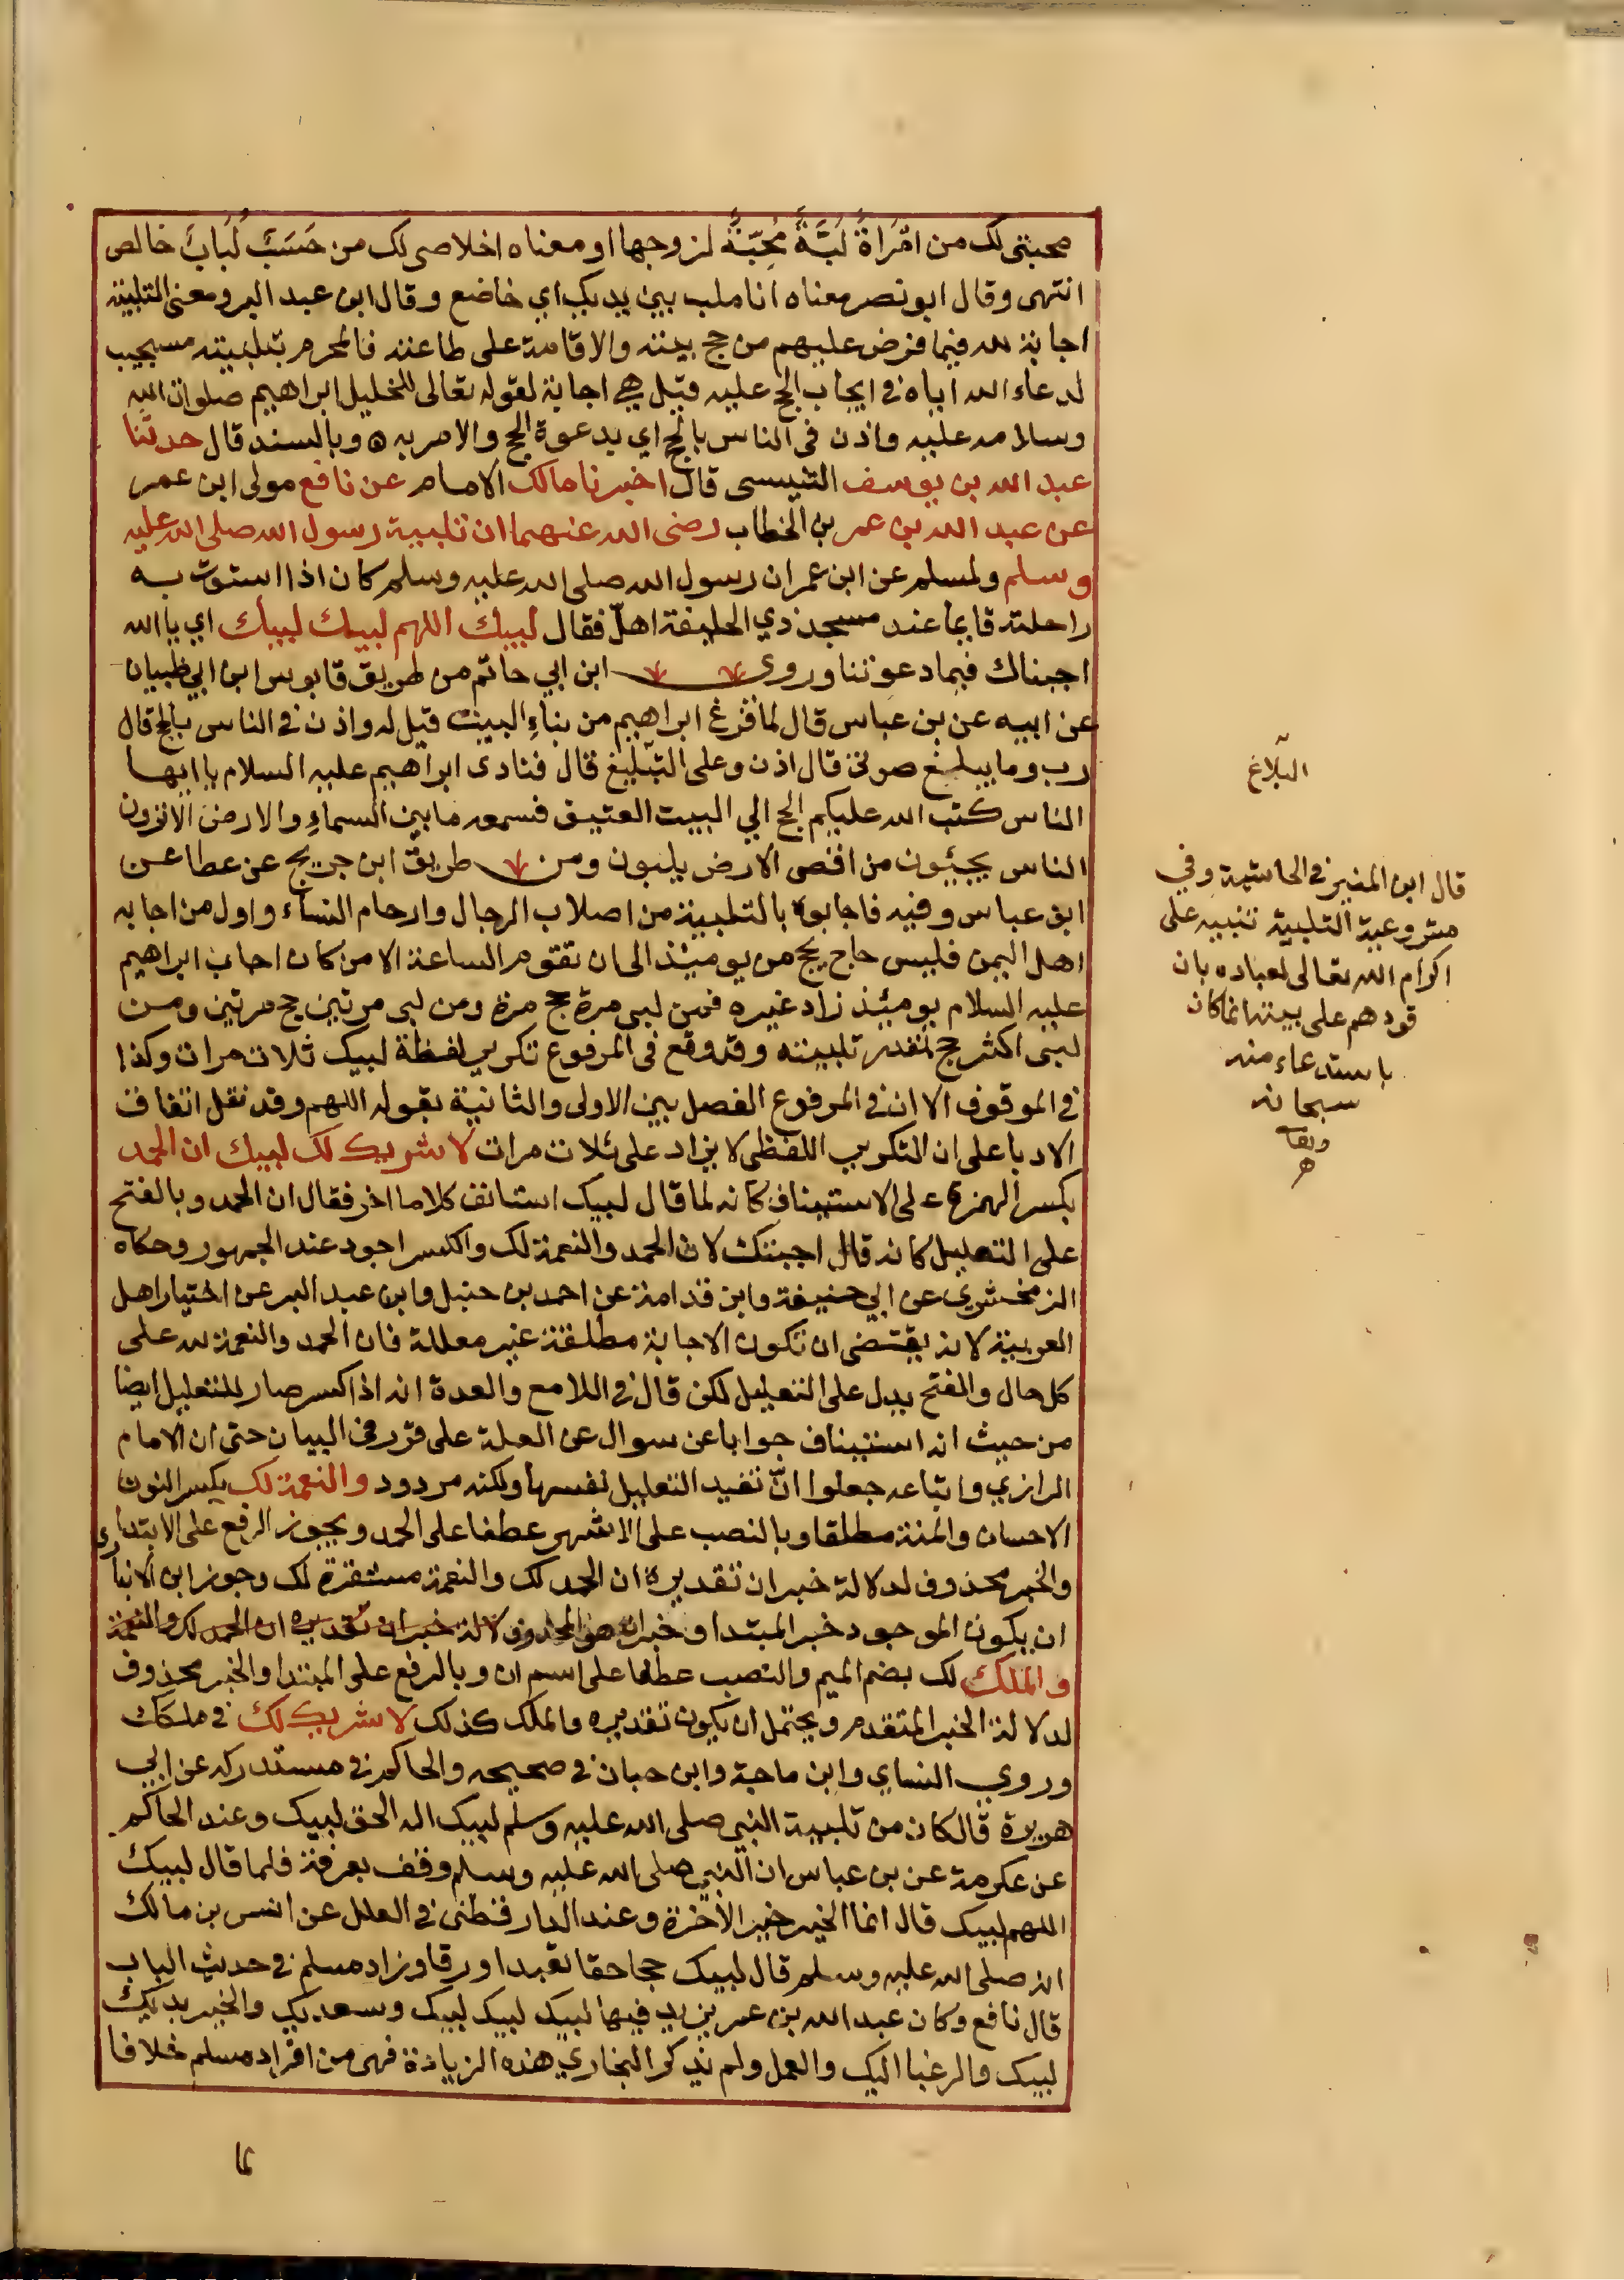 محبتي لك من امْرَاةٌ لَبَّةٌ مُحِبّةٌ لزوجها او معناه اخلاصي لك من حَسَبٌ لُبابٌ خالص
انتهى وقال ابو نصر معناه انا ملب بين يديك اي خاضع وقال ابن عبد البر ومعنى التلبية
اجابة لله فيما فرض عليهم من حج بيته والاقامة على طاعته فالمحرم بتلبيته مستجيب
لدعاء الله اياه في ايجاب الحج عليه قيل هي اجابة لقوله تعالى للخليل ابراهيم صلوات الله
وسلامه عليه واذن في الناس بالحج اي بدعوة الحج والامر به ۵ وبالسند قال حدثنا
عبد الله بن يوسف التنيسي قال اخبرنا مالك الامام عن نافع مولى ابن عمر
عن عبد الله بن عمر بن الخطاب رضي الله عنهما ان تلبية رسول الله صلى الله عليه
وسلم ولمسلم عن ابن عمر ان رسول الله صلى الله عليه وسلم كان اذا استوت به
راحلته قايما عند مسجد ذي الحليفة اهلّ فقال لبيك اللهم لبيك لبيك اي يا الله
اجبناك فيما دعوتنا وروى ابن ابي حاتم من طريق قابوس ابن ابي ظبيان
عن ابيه عن بن عباس قال لما فرغ ابراهيم من بناءِ البيت قيل له واذن في الناس بالحج قال
رب وما يبلغ صوتي قال اذن وعلى التبليغ قال فنادى ابراهيم عليه السلام يا ايها
الناس كتب الله عليكم الحج الي البيت العتيق فسمعه ما بين السماءِ والارض الا ترون
الناس يجيئون من اقصى الارض يلبون ومن طريق ابن جريج عن عطا عن
ابن عباس وفيه فاجابوه بالتلبية من اصلاب الرجال وارحام النساء واول من اجابه
اهل اليمن فليس حاج يحج من يوميئذ الى ان تقوم الساعة الا من كان اجاب ابراهيم
عليه السلام يوميئذ زاد غيره فمن لبى مرة حج مرة ومن لبى مرتين حج مرتين ومن
لبى اكثر حج بقدر تلبيته وقد وقع في المرفوع تكرير لفظة لبيك ثلاث مرات وكذا
في الموقوف الا ان في المرفوع الفصل بين الاولى والثانية بقوله اللهم وقد نقل اتفاق
الادبا على ان التكرير اللفظي لا يزاد على ثلاث مرات لا شريك لك لبيك ان الحمد
بكسر الهمزة على الاستيناف كانه لما قال لبيك استانف كلاما اخر فقال ان الحمد وبالفتح
على التعليل كانه قال اجبتك لان الحمد والنعمة لك والكسر اجود عند الجمهور وحكاه
الزمخشري عن ابي حنيفة وابن قدامة عن احمد بن حنبل وابن عبد البر عن اختيار اهل
العربية لانه يقتضي ان تكون الاجابة مطلقة غير معللة فان الحمد والنعمة لله على
كل حال والفتح يدل على التعليل لكن قال في اللامع والعدة انه اذا كسر صار للتعليل ايضا
من حيث انه استيناف جوابا عن سوال عن العلة على قرر في البيان حتى ان الامام
الرازي واتباعه جعلوا انّ تفيد التعليل نفسها ولكنه مردود والنعمة لك بكسر النون
الاحسان والمنة مطلقا وبالنصب على الاشهر عطفا على الحمد ويجوز الرفع على الابتداء
والخبر محذوف لدلالة خبر ان تقديره ان الحمد لك والنعمة مستقرة لك وجوز ابن الانباري
ان يكون الموجود خبر المبتدا وخبر ان هو المحذوف لدلالة خبر ان تقديره ان الحمد لك والنعمة
والملك لك بضم الميم والنصب عطفا على اسم ان وبالرفع على المبتدا والخبر محذوف
لدلالة الخبر المتقدم ويحتمل ان يكون تقديره والملك كذلك لا شريك لك في ملكك
وروي النساي وابن ماجة وابن حبان في صحيحه والحاكم في مستدركه عن ابي
هريرة قال كان من تلبية النبي صلى الله عليه وسلم لبيك اله الحق لبيك وعند الحاكم
عن عكرمة عن بن عباس ان النبي صلى الله عليه وسلم وقف بعرفة فلما قال لبيك
اللهم لبيك قال انما الخير خير الاخرة وعند الدارقطني في العلل عن انس بن مالك
انه صلى الله عليه وسلم قال لبيك حجا حقا تعبدا ورقا وزاد مسلم في حديث الباب
قال نافع وكان عبد الله بن عمر يزيد فيها لبيك لبيك لبيك وسعديك والخير بيديك
لبيك والرغبا اليك والعمل ولم يذكر البخاري هذه الزيادة فهي من افراد مسلم خلافا
لما
البلاغ
قال ابن المنير في الحاشية وفي
مشروعية التلبية تنبيه على
اكرام الله تعالى لعباده بان
قودهم على بيته انما كان
باستدعاء منه
سبحانه